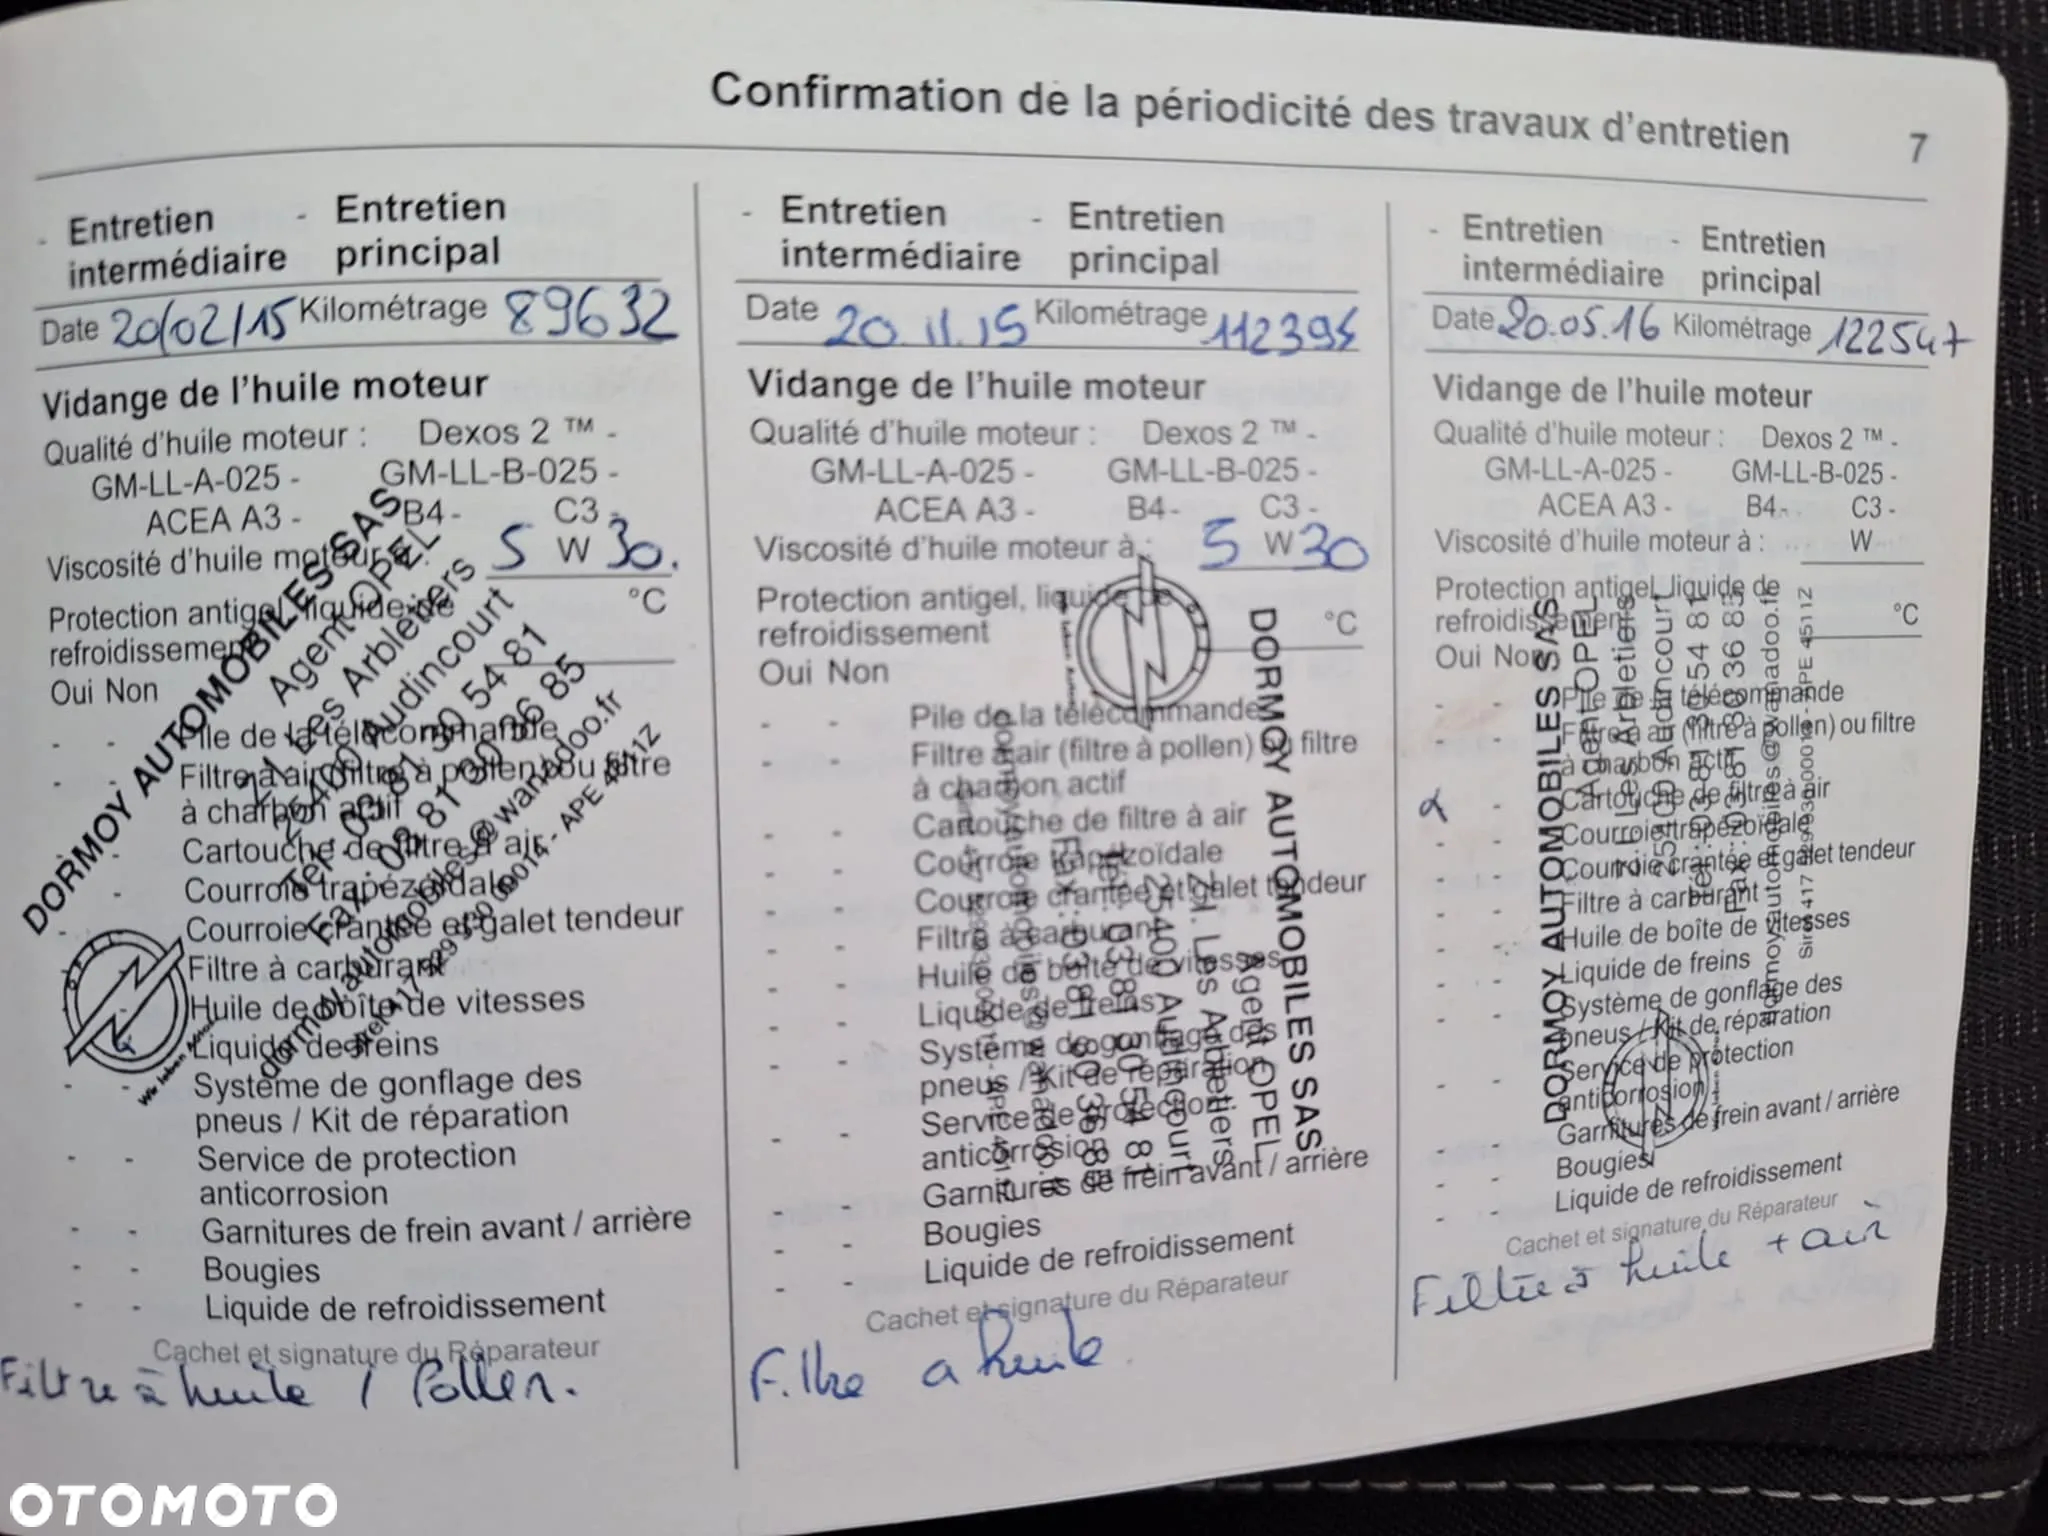 Confirmation de la périodicité des travaux d'entretien 7
- Entretien intermédiaire - Entretien principal
Date 20/02/15 Kilométrage 89632
Vidange de l'huile moteur
Qualité d'huile moteur : Dexos 2 ™ -
GM-LL-A-025 - GM-LL-B-025 -
ACEA A3 - B4 - C3 -
Viscosité d'huile moteur à : 5 W 30.
Protection antigel, liquide de
refroidissement °C
Oui Non
- - Pile de la télécommande
- - Filtre à air (filtre à pollen) ou filtre
à charbon actif
- Cartouche de filtre à air
- Courroie trapézoïdale
- Courroie crantée et galet tendeur
Filtre à carburant
Huile de boîte de vitesses
Liquide de freins
- - Système de gonflage des
pneus / Kit de réparation
- - Service de protection
anticorrosion
- - Garnitures de frein avant / arrière
- - Bougies
- - Liquide de refroidissement
Cachet et signature du Réparateur
Filtre à huile / Pollen.
DORMOY AUTOMOBILES SAS
Agent OPEL
Z.I. Les Arbletiers
25400 Audincourt
Tél : 03 81 30 54 81
Fax : 03 81 80 36 85
dormoy.automobiles@wanadoo.fr
- Entretien intermédiaire - Entretien principal
Date 20.11.15 Kilométrage 112395
Vidange de l'huile moteur
Qualité d'huile moteur : Dexos 2 ™ -
GM-LL-A-025 - GM-LL-B-025 -
ACEA A3 - B4- C3 -
Viscosité d'huile moteur à : 5 W 30
Protection antigel, liquide de
refroidissement °C
Oui Non
- - Pile de la télécommande
- - Filtre à air (filtre à pollen) ou filtre
à charbon actif
- - Cartouche de filtre à air
- - Courroie trapézoïdale
- - Courroie crantée et galet tendeur
- - Filtre à carburant
- - Huile de boîte de vitesses
- - Liquide de freins
- - Système de gonflage des
pneus / Kit de réparation
- - Service de protection
anticorrosion
- - Garnitures de frein avant / arrière
- - Bougies
- - Liquide de refroidissement
Cachet et signature du Réparateur
Filtre a huile
DORMOY AUTOMOBILES SAS
Agent OPEL
Z.I. Les Arbletiers
25400 Audincourt
Tél : 03 81 30 54 81
Fax : 03 81 80 36 85
- Entretien intermédiaire - Entretien principal
Date 20.05.16 Kilométrage 122547
Vidange de l'huile moteur
Qualité d'huile moteur : Dexos 2 ™ -
GM-LL-A-025 - GM-LL-B-025 -
ACEA A3 - B4- C3 -
Viscosité d'huile moteur à : W
Protection antigel, liquide de
refroidissement °C
Oui Non
- - Pile de la télécommande
- - Filtre à air (filtre à pollen) ou filtre
à charbon actif
- Cartouche de filtre à air
- - Courroie trapézoïdale
- - Courroie crantée et galet tendeur
- - Filtre à carburant
- - Huile de boîte de vitesses
- - Liquide de freins
- - Système de gonflage des
pneus / Kit de réparation
- - Service de protection
anticorrosion
- - Garnitures de frein avant / arrière
- - Bougies
- - Liquide de refroidissement
Cachet et signature du Réparateur
Filtre à huile + air
DORMOY AUTOMOBILES SAS
Agent OPEL
Z.I. Les Arbletiers
25400 Audincourt
Tél : 03 81 30 54 81
Fax : 03 81 80 36 85
dormoy.automobiles@wanadoo.fr
OTOMOTO